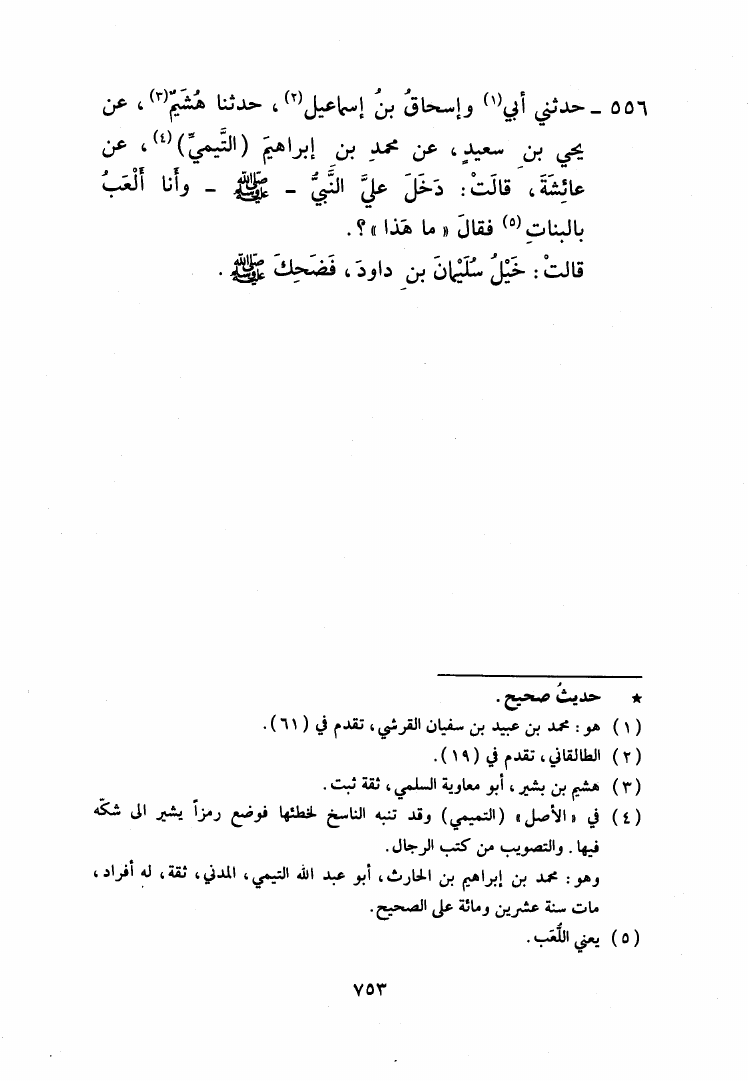 ٥٥٦ ـ حدثني أبي(١) وإسحاقُ بنُ إسماعيل(٢)، حدثنا هُشَيمٌ(٣)، عن
يحيي بنِ سعيدٍ، عن محمدِ بنِ إبراهيمَ (التَّيميِّ)(٤)، عن
عائِشَةَ، قالَتْ: دَخَلَ عليَّ النَّبيُّ ـ ﷺ ـ وأنا ألْعَبُ
بالبناتِ(٥) فقالَ « ما هَذا »؟.
قالتْ: خَيْلُ سُلَيْمانَ بنِ داودَ، فَضَحِكَ ﷺ.
★ حديثُ صحيح.
(١) هو: محمد بن عبيد بن سفيان القرشي، تقدم في (٦١).
(٢) الطالقاني، تقدم في (١٩).
(٣) هشيم بن بشير، أبو معاوية السلمي، ثقة ثبت.
(٤) في «الأصل» (التميمي) وقد تنبه الناسخ لخطئها فوضع رمزاً يشير الى شكّه
فيها. والتصويب من كتب الرجال.
وهو: محمد بن إبراهيم بن الحارث، أبو عبد الله التيمي، المدني، ثقة، له أفراد،
مات سنة عشرين ومائة على الصحيح.
(٥) يعني اللُّعَب.
٧٥٣